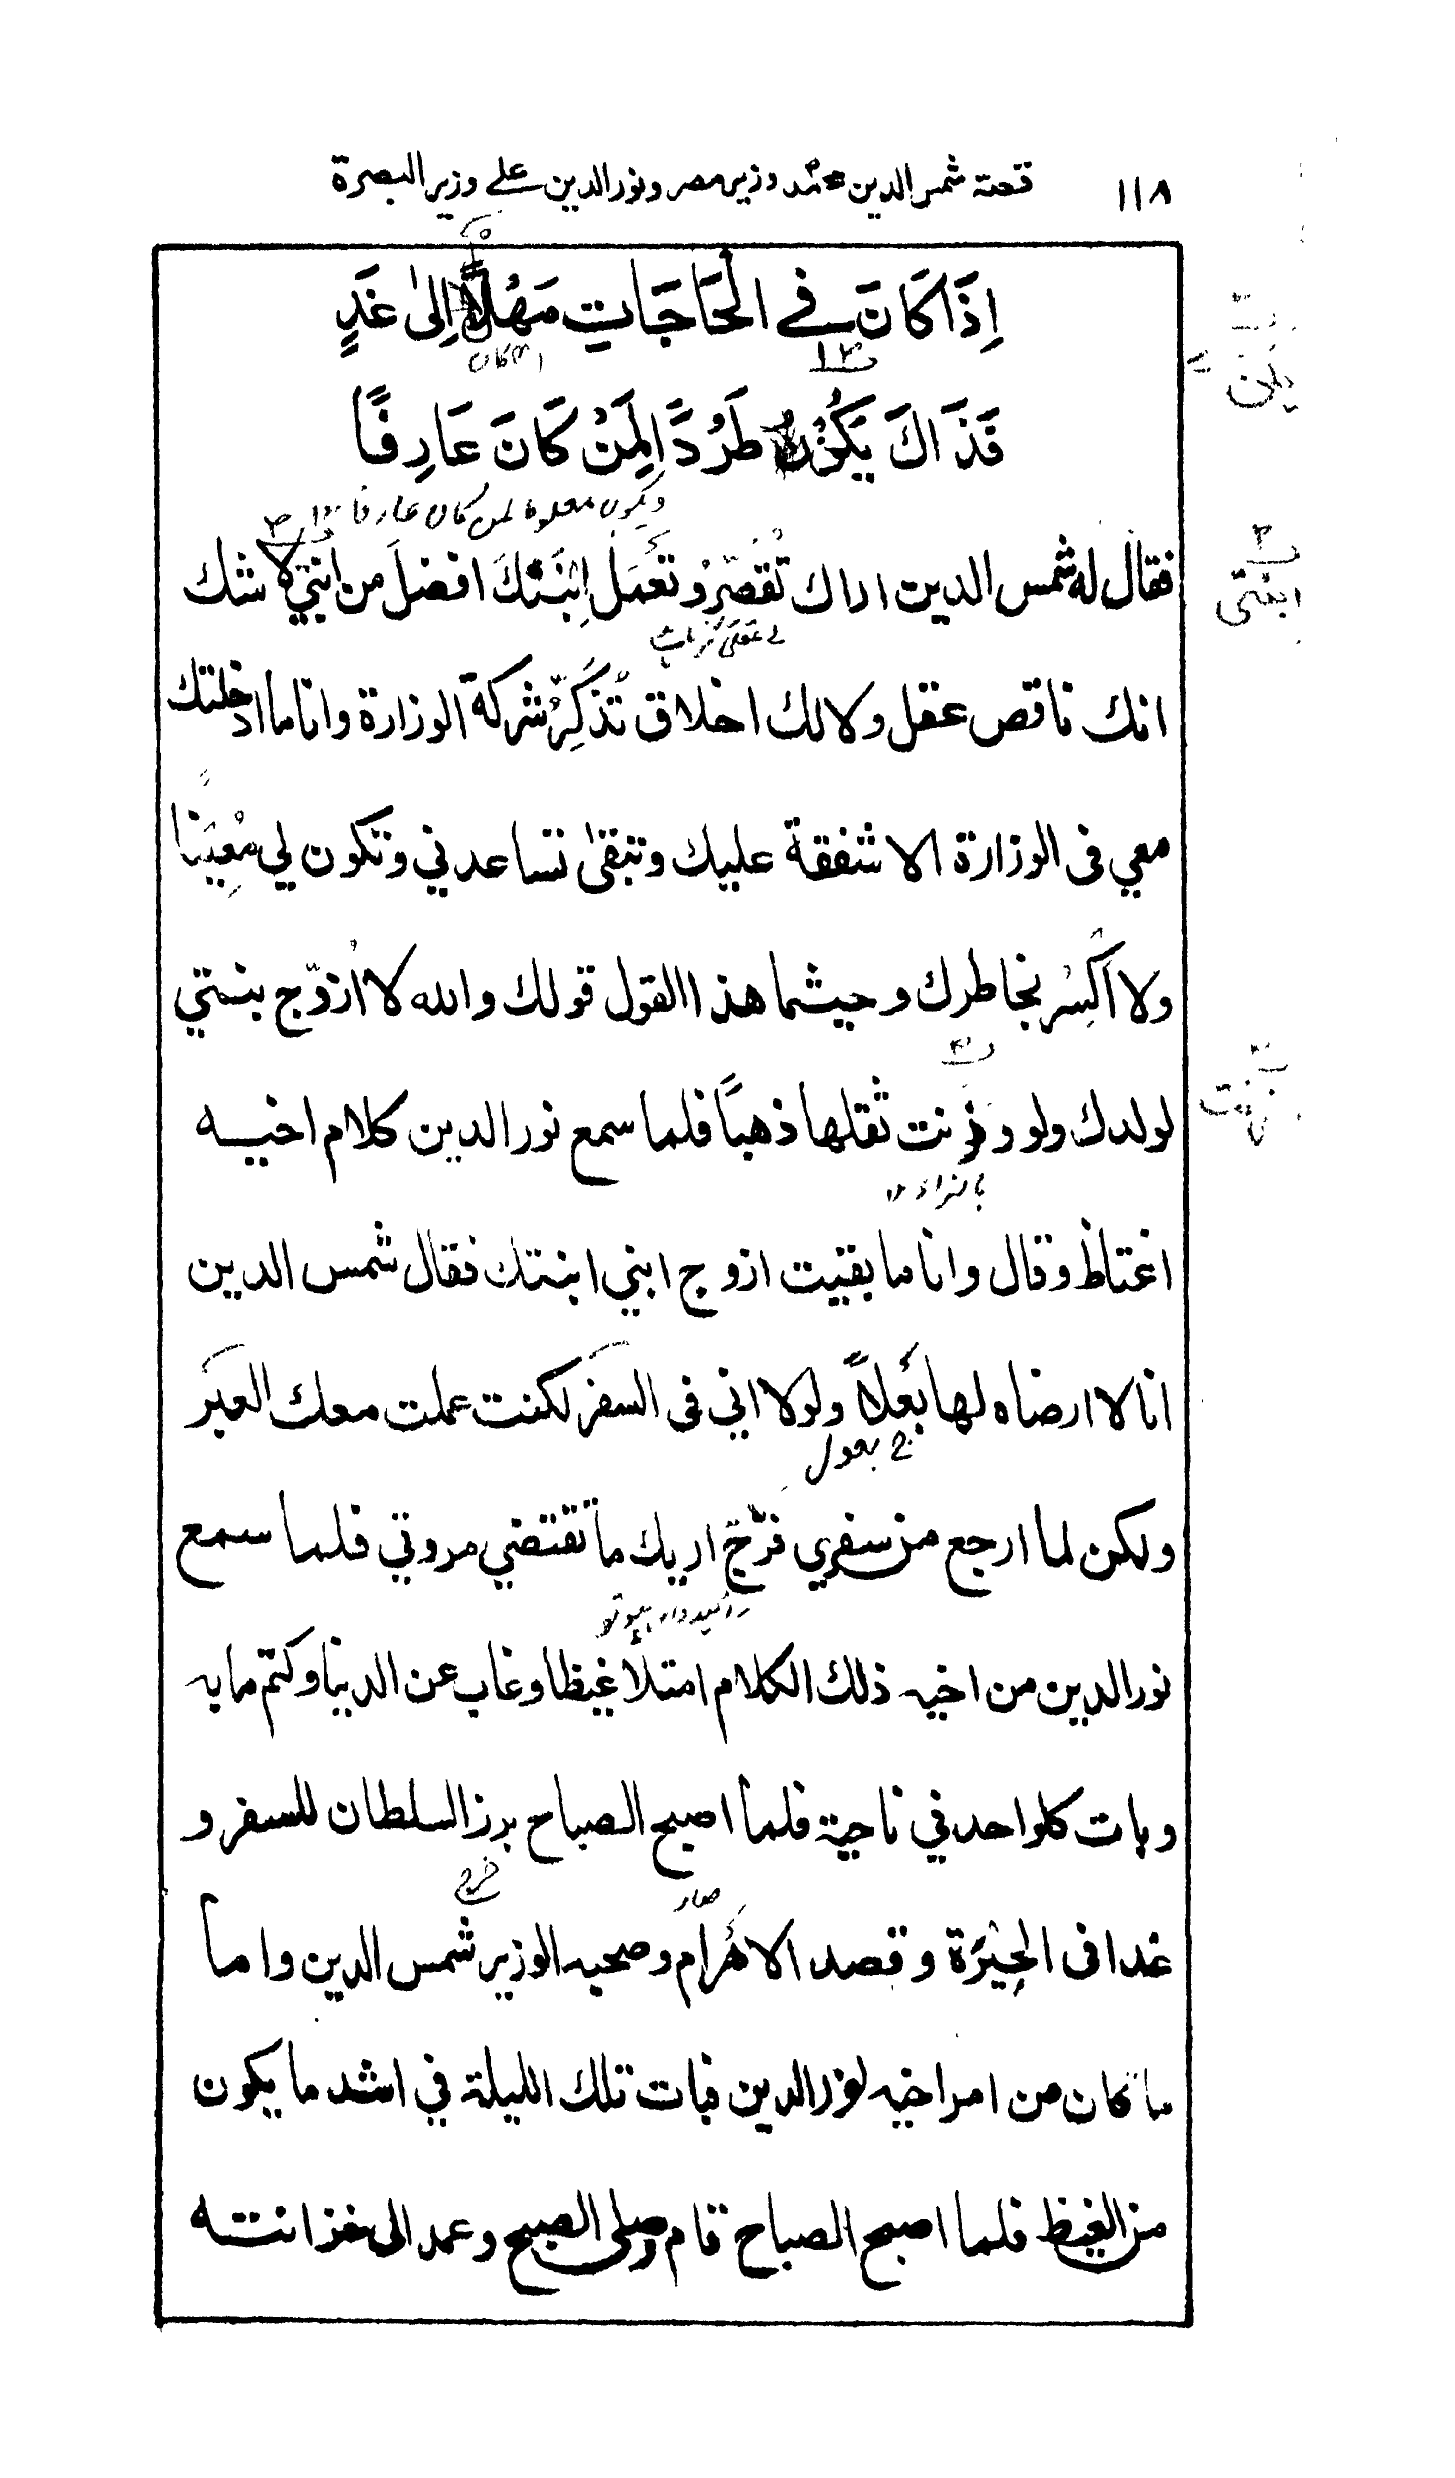 ١١٨ قصة شمس الدين محمد وزير مصر ونور الدين علے وزير البصرة
اِذَا كَانَ فے الْحَاجَاتِ مَهْلًا اِلىٰ غَدٍ
فَذَاكَ يَكُوْنُ طَرْدًا لِمَنْ كَانَ عَارِفًا
ويكون معلوما لمن كان عارفا
فقال له شمس الدين اراك تُقصّرُ وتَعْمَل اِبْنَكَ افضلَ من ابنتي لا شك
ابنتى
انك ناقص عقل ولا لك اخلاق تُذَكِّرُ شركة الوزارة وانا ما ادخلتك
معي فى الوزارة الا شفقة عليك وتبقىٰ تساعدني وتكون لي مُعِيْنًا
ولا اَكْسِرُ بخاطرك وحيثما هذا القول قولك والله لا اُزوّج بنتي
لولدك ولو وزنت ثقلها ذهبًا فلما سمع نور الدين كلام اخيه
اغتاظ وقال وانا ما بقيت ازوج ابني ابنتك فقال شمس الدين
انا لا ارضاه لها بَعْلًا ولولا اني فى السفر لكنت عملت معك العِبَر
ج بعول
ولكن لما ارجع من سفري فرّج اريك ما تقتضي مروتي فلما سمع
نور الدين من اخيه ذلك الكلام امتلا غيظا وغاب عن الدنيا وكتم ما به
وبات كلواحد في ناحية فلما اصبح الصباح برز السلطان للسفر و
غدا فى الجِيْزَة وقصد الاهْرام وصحبه الوزير شمس الدين واما
ما كان من امر اخيه نور الدين فبات تلك الليلة في اشد ما يكون
من الغيظ فلما اصبح الصباح قام وصلى الصبح وعمد الى خزانته